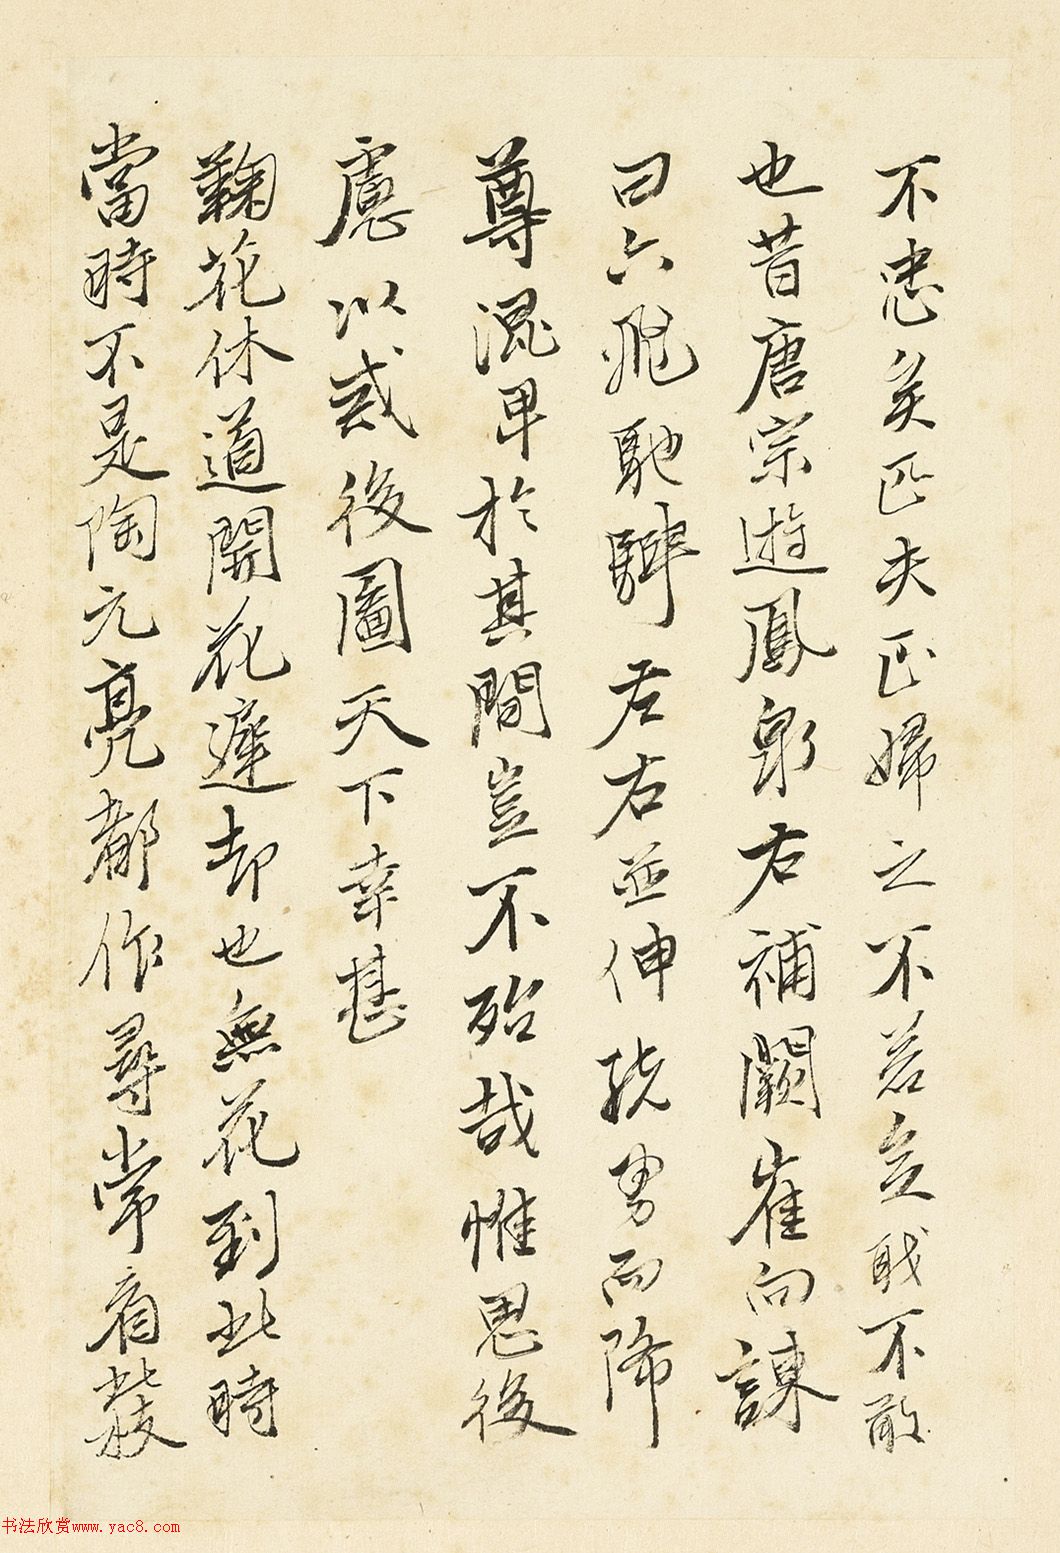 不忠矣匹夫匹婦之不若立戝不敢
也昔唐宗遊鳳泉右補闕崔向諫
曰六飛馳騁左右並伸弛男而降
尊混卑於其間豈不殆哉惟思後
慮以貳後圖天下幸甚
鞠花休道開花遲却也無花到此時
當時不是陶元亮都作尋常看發
书法欣赏www.yac8.com